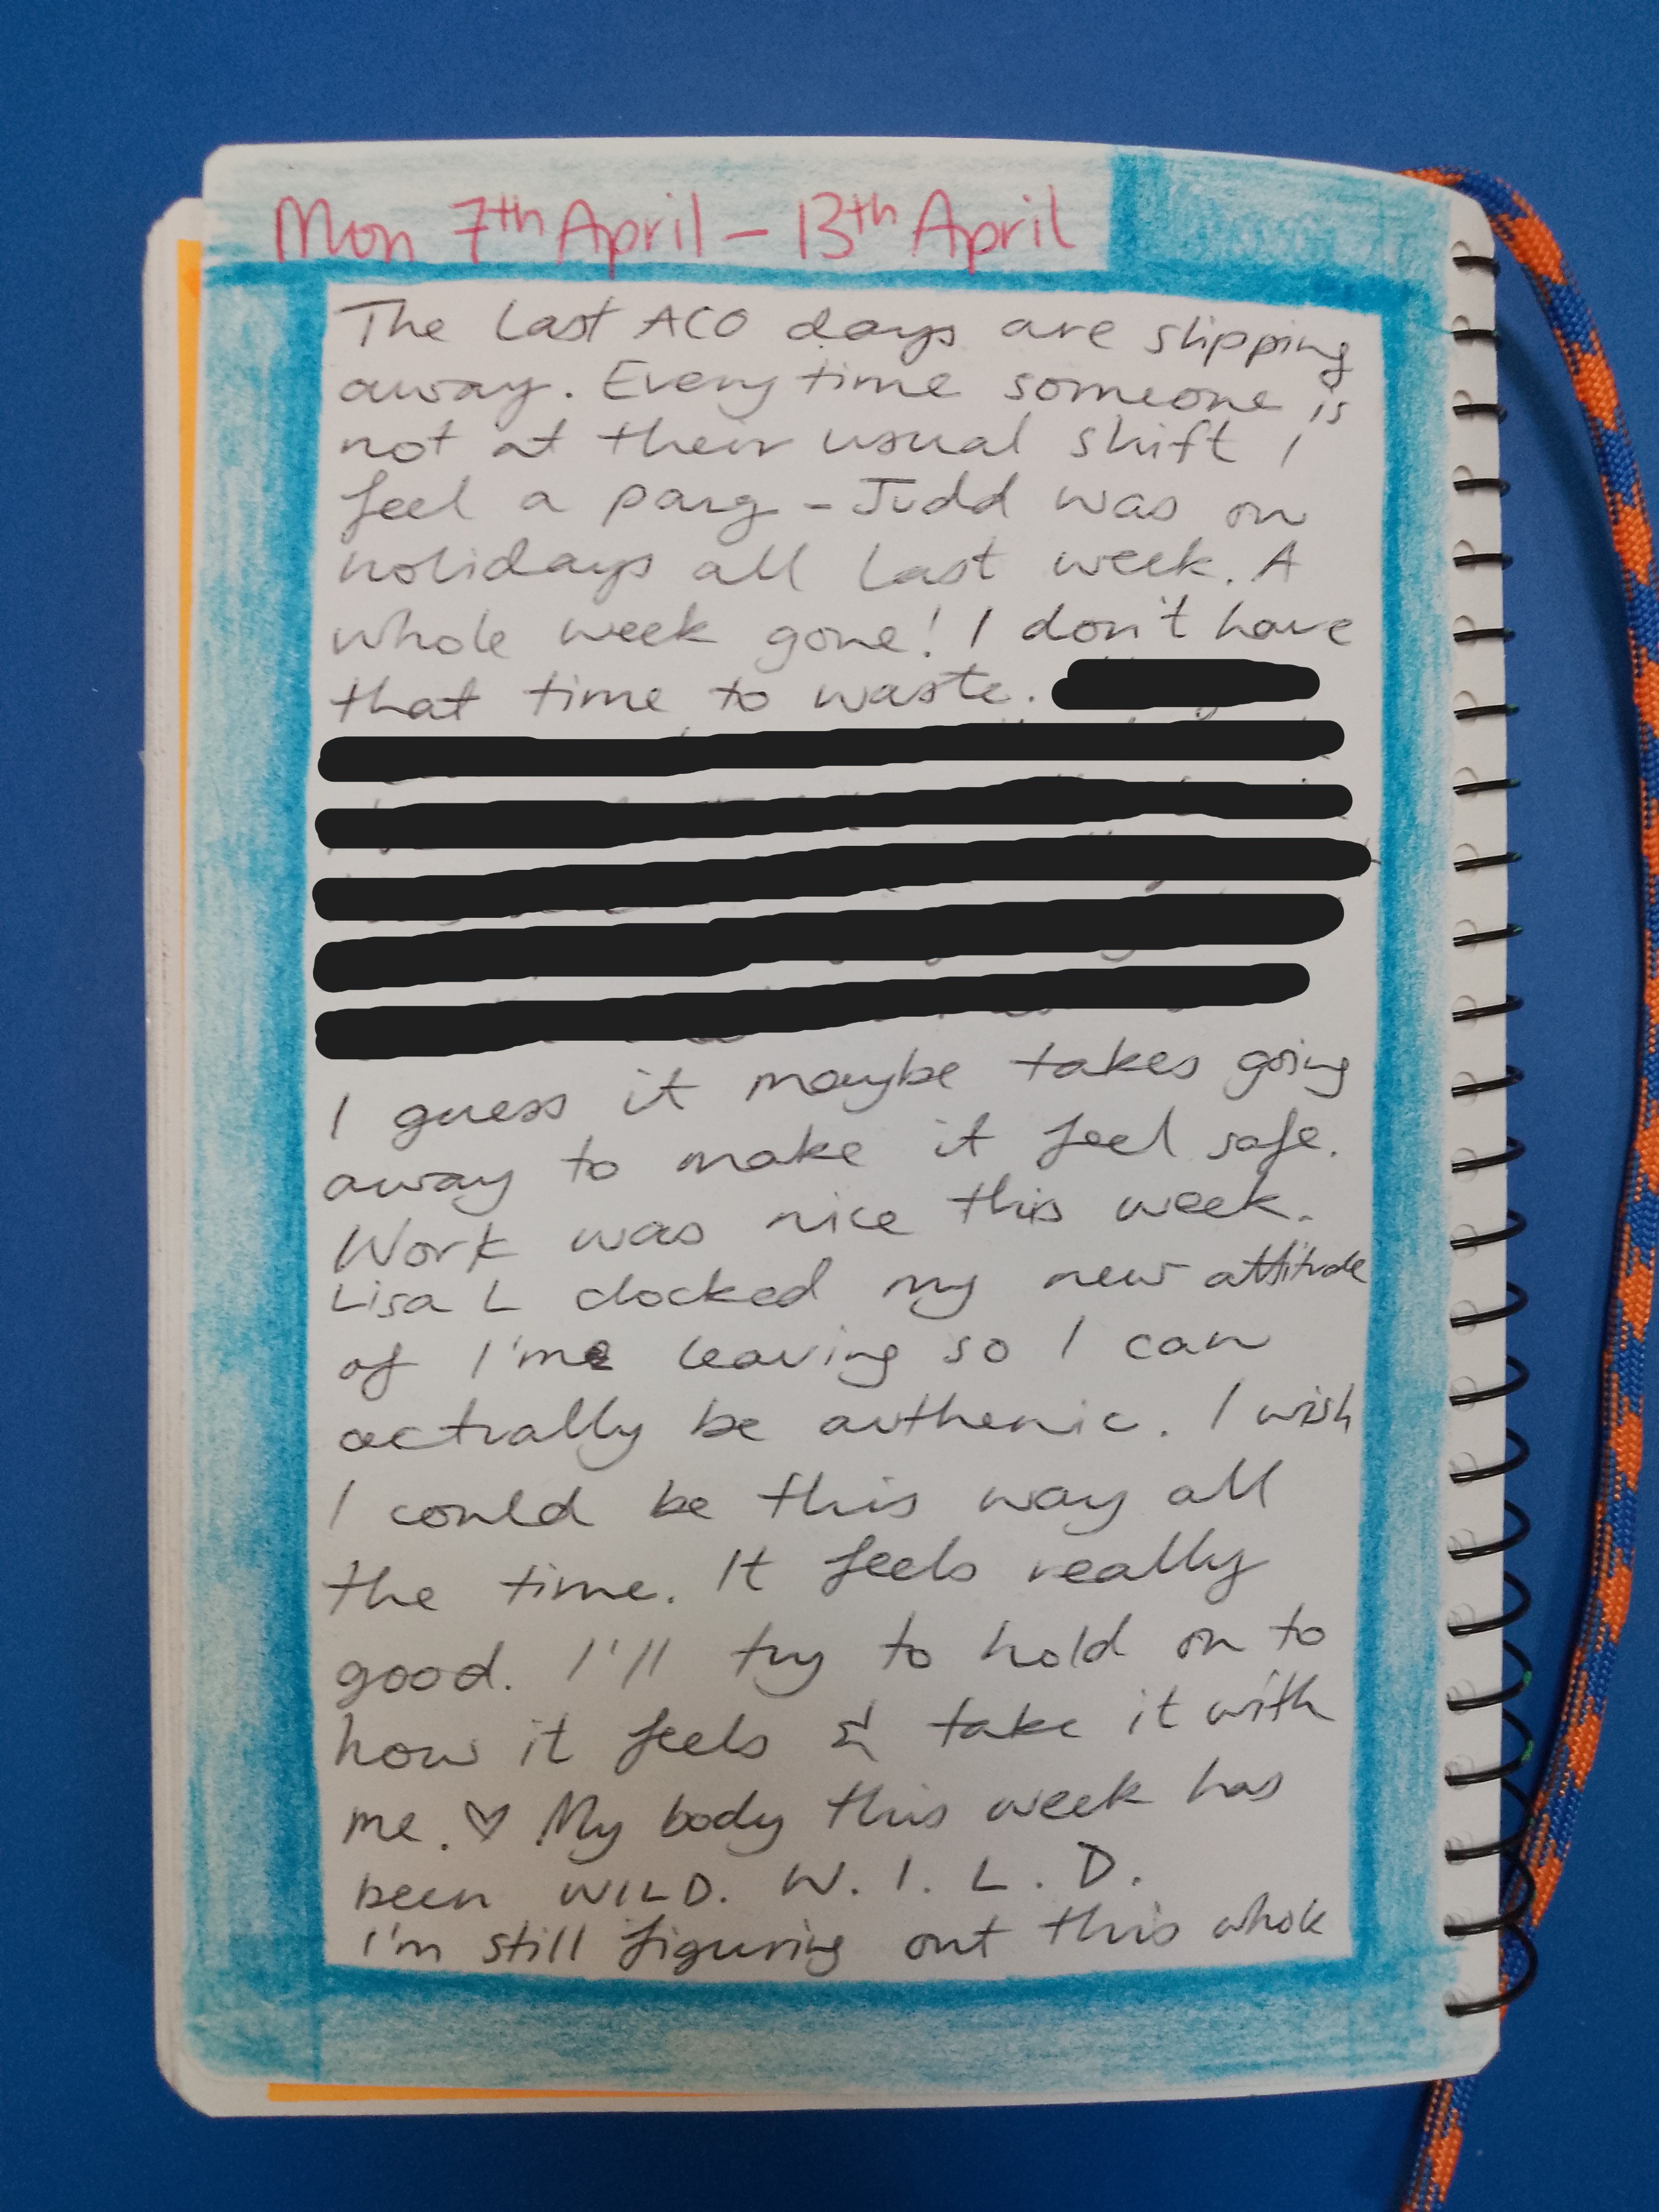 Mon 7th April - 13th April
The last ACO days are slipping
away. Every time someone is
not at their usual shift I
feel a pang - Judd was on
holidays all last week. A
whole week gone! I don't have
that time to waste.
I guess it maybe takes going
away to make it feel safe.
Work was nice this week.
Lisa L clocked my new attitude
of I'm leaving so I can
actually be authenic. I wish
I could be this way all
the time. It feels really
good. I'll try to hold on to
how it feels & take it with
me. ♡ My body this week has
been WILD. W. I. L. D.
I'm still figuring out this whole